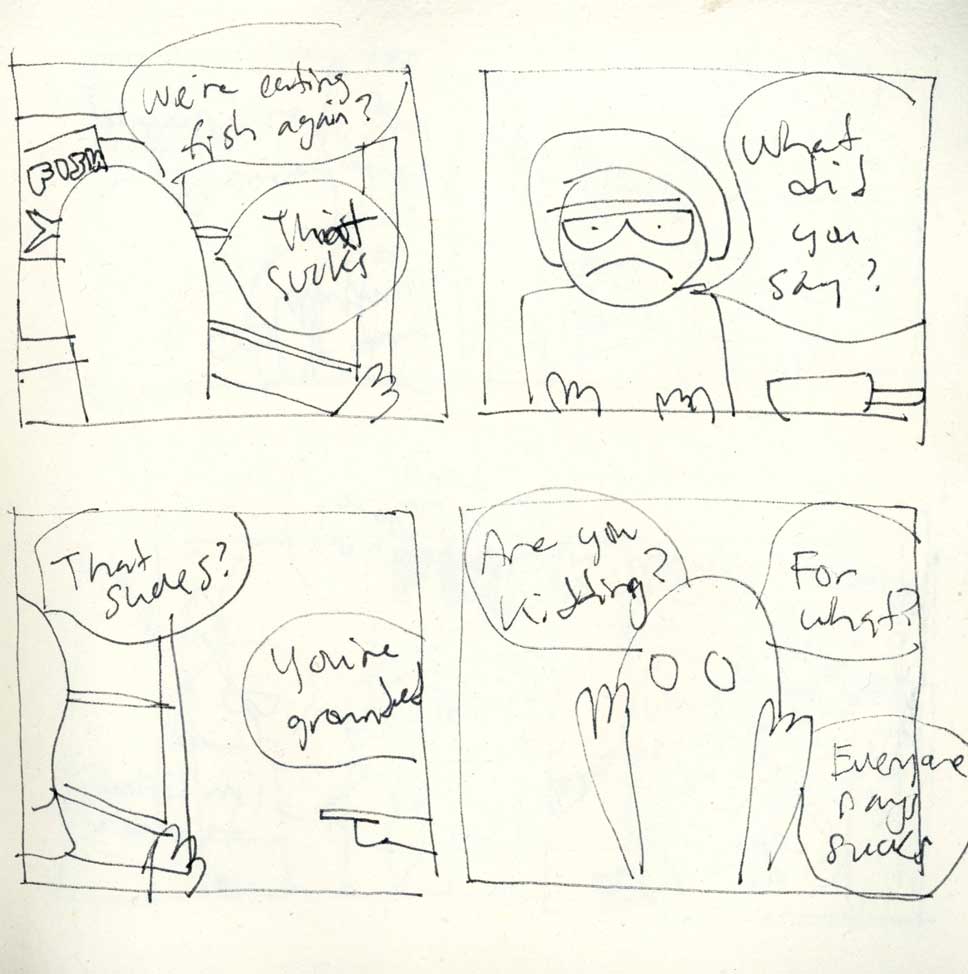 We're eating
fish again?
That
sucks
What
did
you
say?
That
sucks?
You're
grounded
Are you
kidding?
For
what?
Everyone
says
sucks